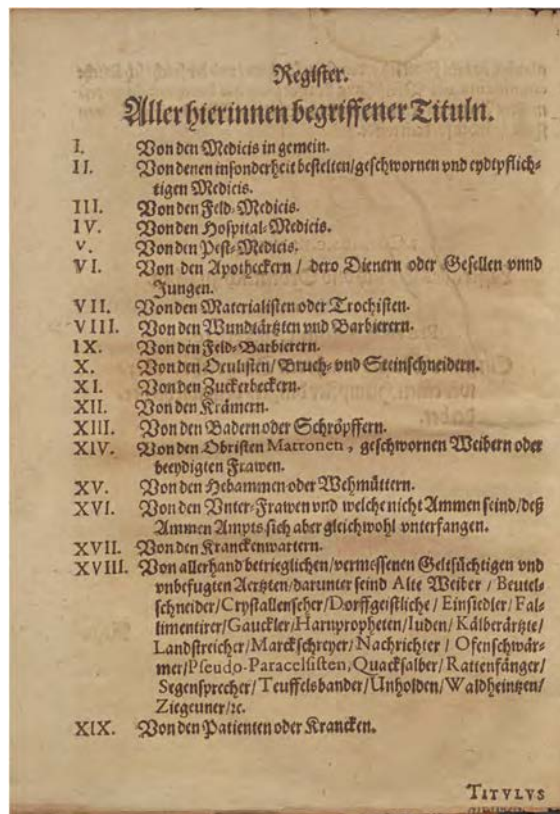 Register.
Aller hierinnen begriffener Tituln.
I. Von den Medicis in gemein.
II. Von denen insonderheit bestelten/geschwornen vnd eydtpflich-
tigen Medicis.
III. Von den Feld-Medicis.
IV. Von den Hospital-Medicis.
V. Von den Pest-Medicis.
VI. Von den Apotheckern / dero Dienern oder Gesellen vnnd
Jungen.
VII. Von den Materialisten oder Trochisten.
VIII. Von den Wundtärtzten vnd Barbierern.
IX. Von den Feld-Barbierern.
X. Von den Oculisten/ Bruch- vnd Steinschneidern.
XI. Von den Zuckerbeckern.
XII. Von den Krämern.
XIII. Von den Badern oder Schröpffern.
XIV. Von den Obristen Matronen, geschwornen Weibern oder
beeydigten Frawen.
XV. Von den Hebammen oder Wehmüttern.
XVI. Von den Vnter-Frawen vnd welche nicht Ammen seind/deß
Ammen Ampts sich aber gleichwohl vnterfangen.
XVII. Von den Kranckenwartern.
XVIII. Von allerhand betrieglichen/vermessenen Geltsüchtigen vnd
vnbefugten Aertzten/darunter seind Alte Weiber / Beutel-
schneider/Crystallenseher/Dorffgeistliche/ Einsiedler/ Fal-
limentirer/Gauckler/Harnpropheten/Iuden/ Kälberärtzte/
Landstreicher/Marckschreyer/Nachrichter / Ofenschwär-
mer/Pseudo-Paracelsisten, Quacksalber/ Rattenfänger/
Segensprecher/Teuffelsbander/Unholden/Waldheintzen/
Ziegeuner/ꝛc.
XIX. Von den Patienten oder Krancken.
TITVLVS